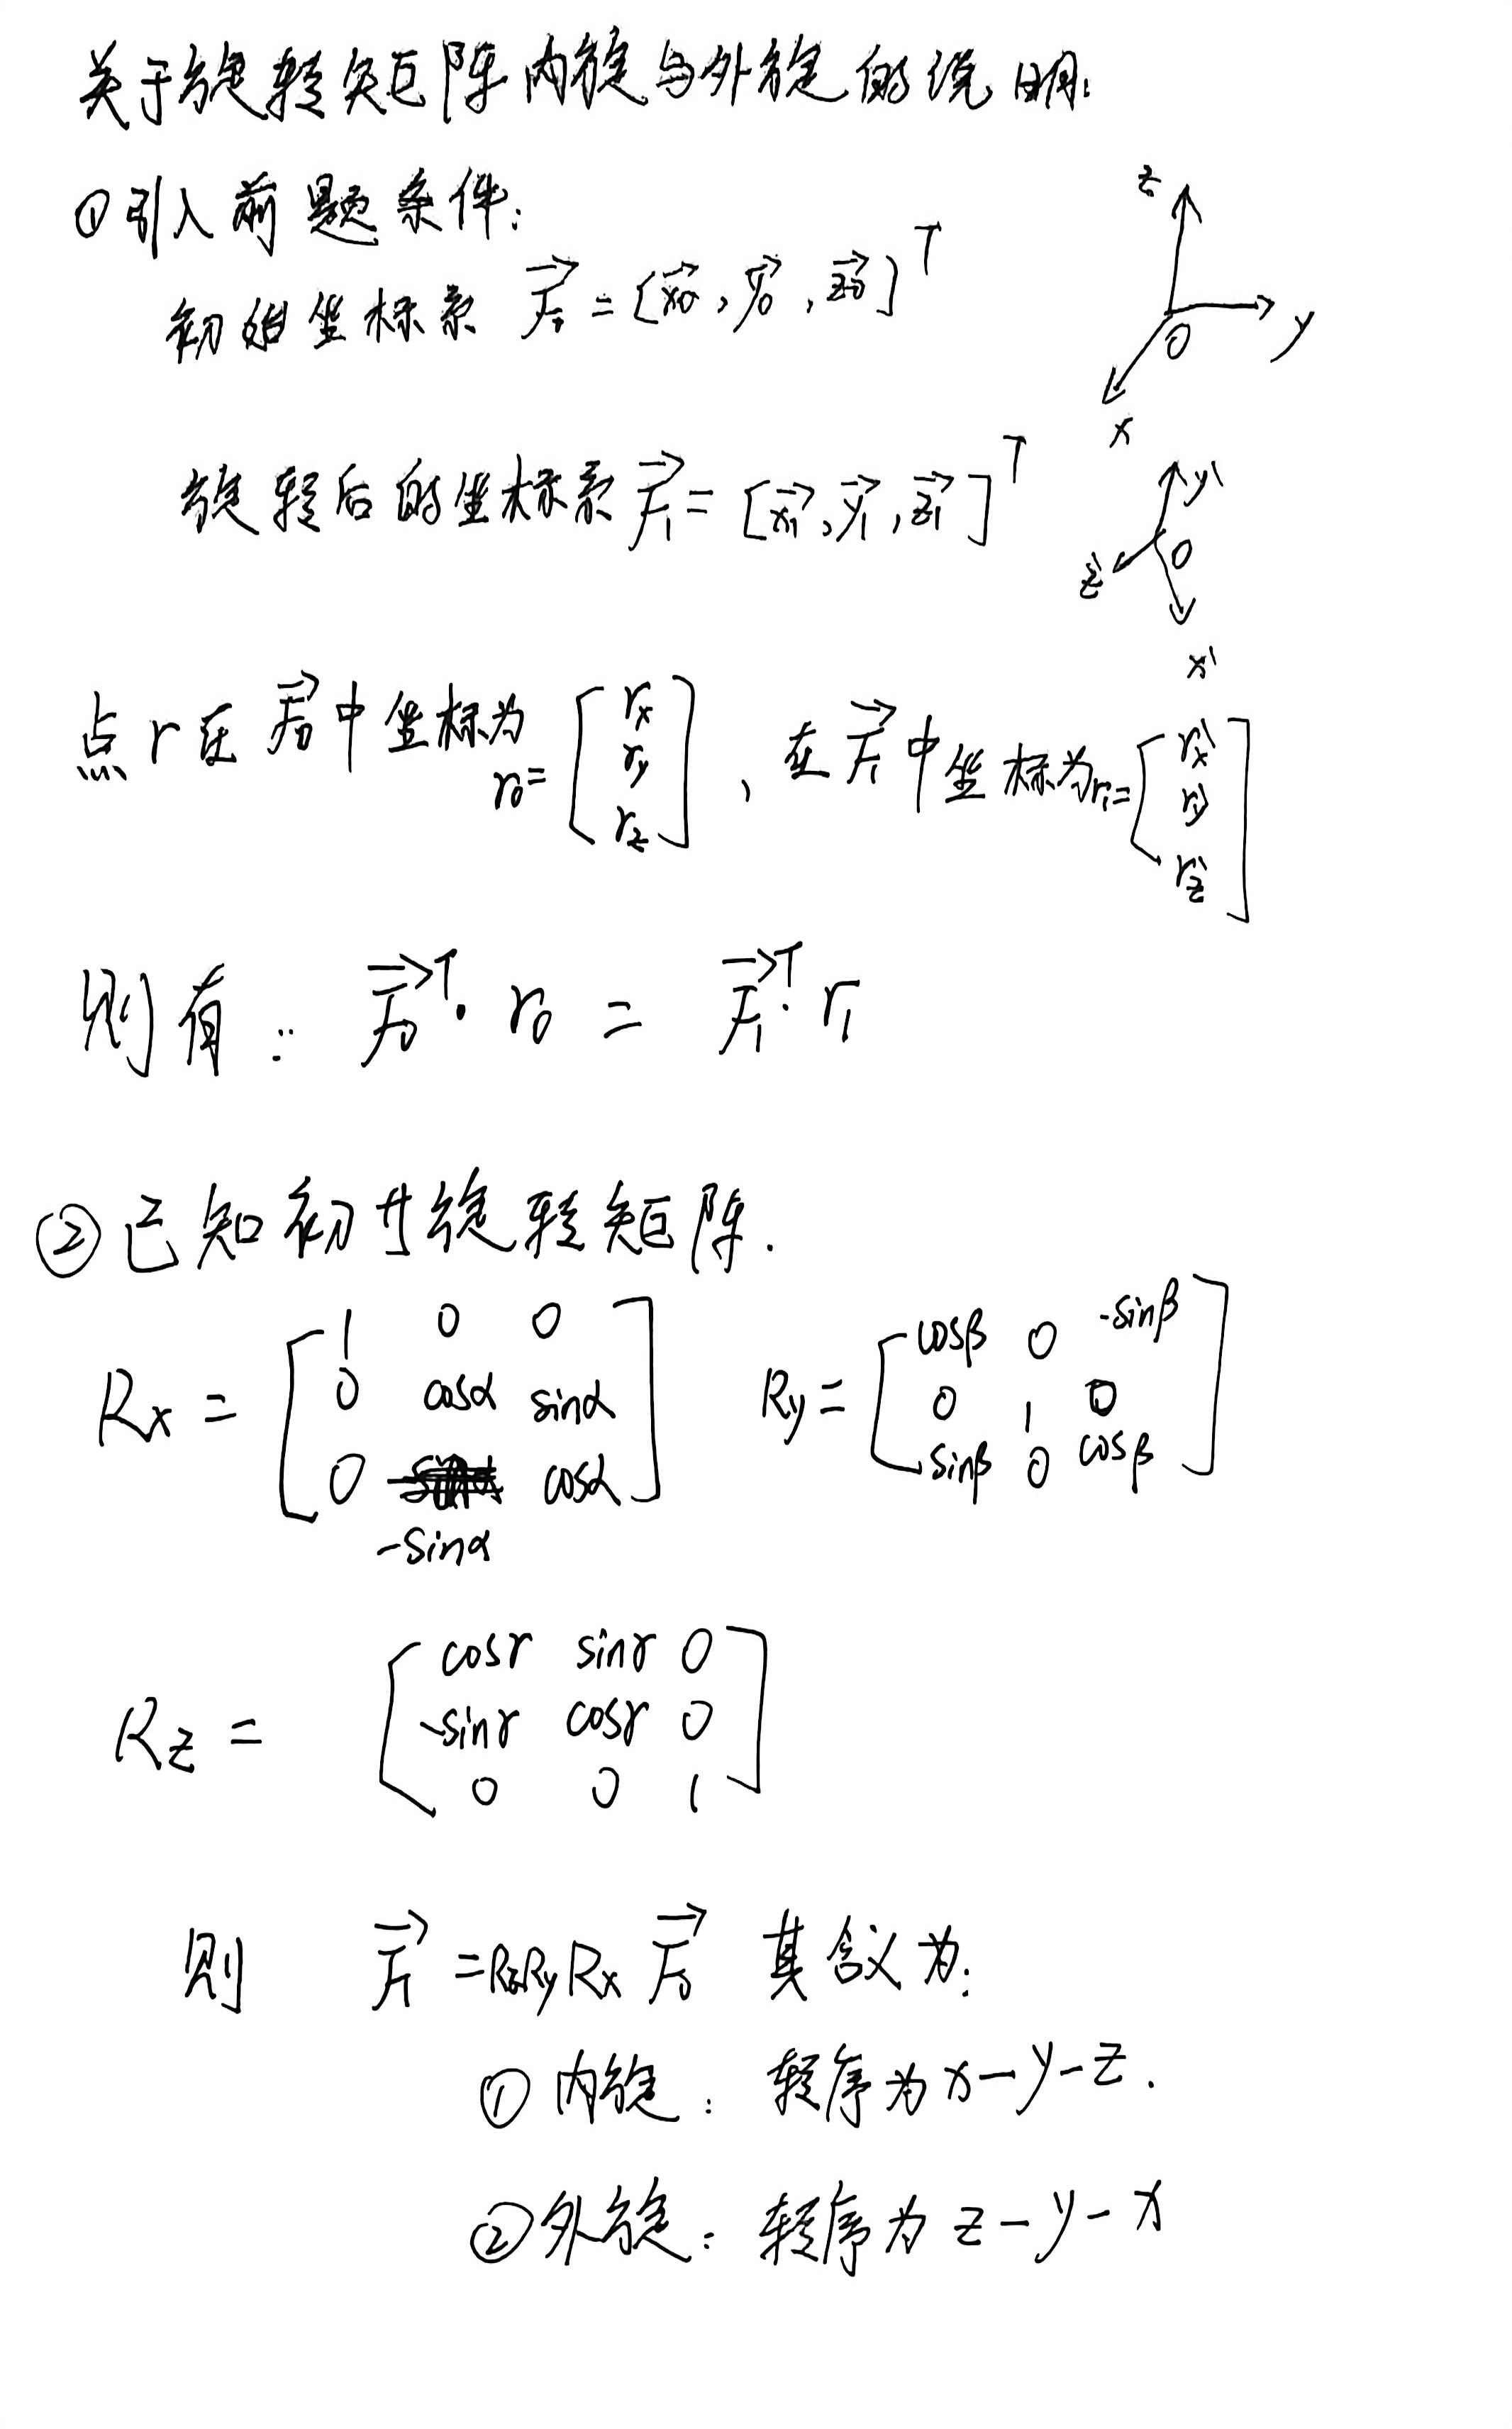 关于旋转矩阵内旋与外旋的说明:
①引入前题条件:
初始坐标系 F₀ = [x₀, y₀, z₀]ᵀ
z
y
O
x
旋转后的坐标系 F₁ = [x₁, y₁, z₁]ᵀ
y'
O
z'
x'
点r在F₀中坐标为 r₀ = [rx ry rz], 在F₁中坐标为 r₁ = [rx' ry' rz']
则有: F₀ᵀ · r₀ = F₁ᵀ · r₁
②已知初等旋转矩阵.
Rx = [1 0 0
0 cosα sinα
0 -sinα cosα]
Ry = [cosβ 0 -sinβ
0 1 0
sinβ 0 cosβ]
Rz = [cosγ sinγ 0
-sinγ cosγ 0
0 0 1]
则 F₁ = RzRyRx F₀ 其含义为:
①内旋: 转序为x-y-z.
②外旋: 转序为z-y-x